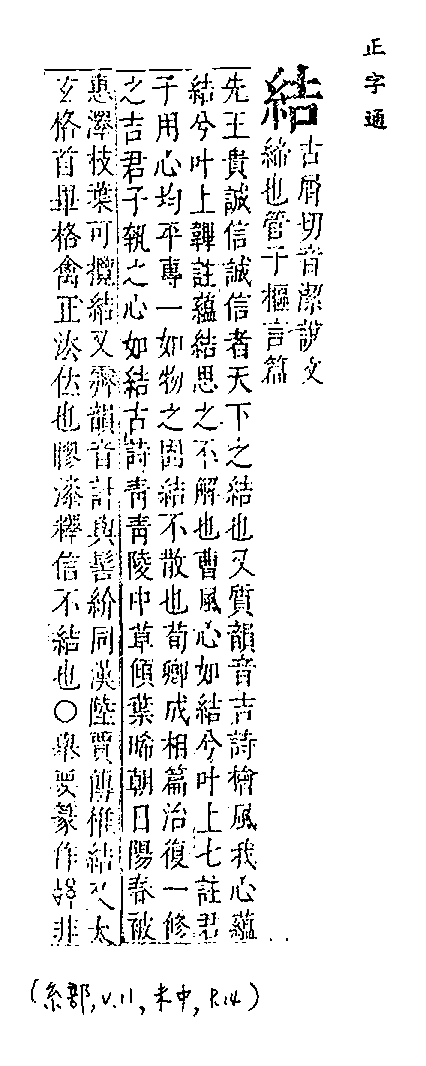 正字通
結
古屑切音潔說文
締也管子樞言篇
先王貴誠信誠信者天下之結也又質韻音吉詩檜風我心蘊
結兮叶上韠註蘊結思之不解也曹風心如結兮叶上七註君
子用心均平專一如物之固結不散也荀卿成相篇治復一修
之吉君子執之心如結古詩靑靑陵中草傾葉晞朝日陽春被
惠澤枝葉可攬結又霽韻音計與髻紒同漢陸賈傳椎結又太
玄格首畢格禽正法位也膠漆釋信不結也○舉要篆作 非
(糸部, v.11, 未中, P.14)